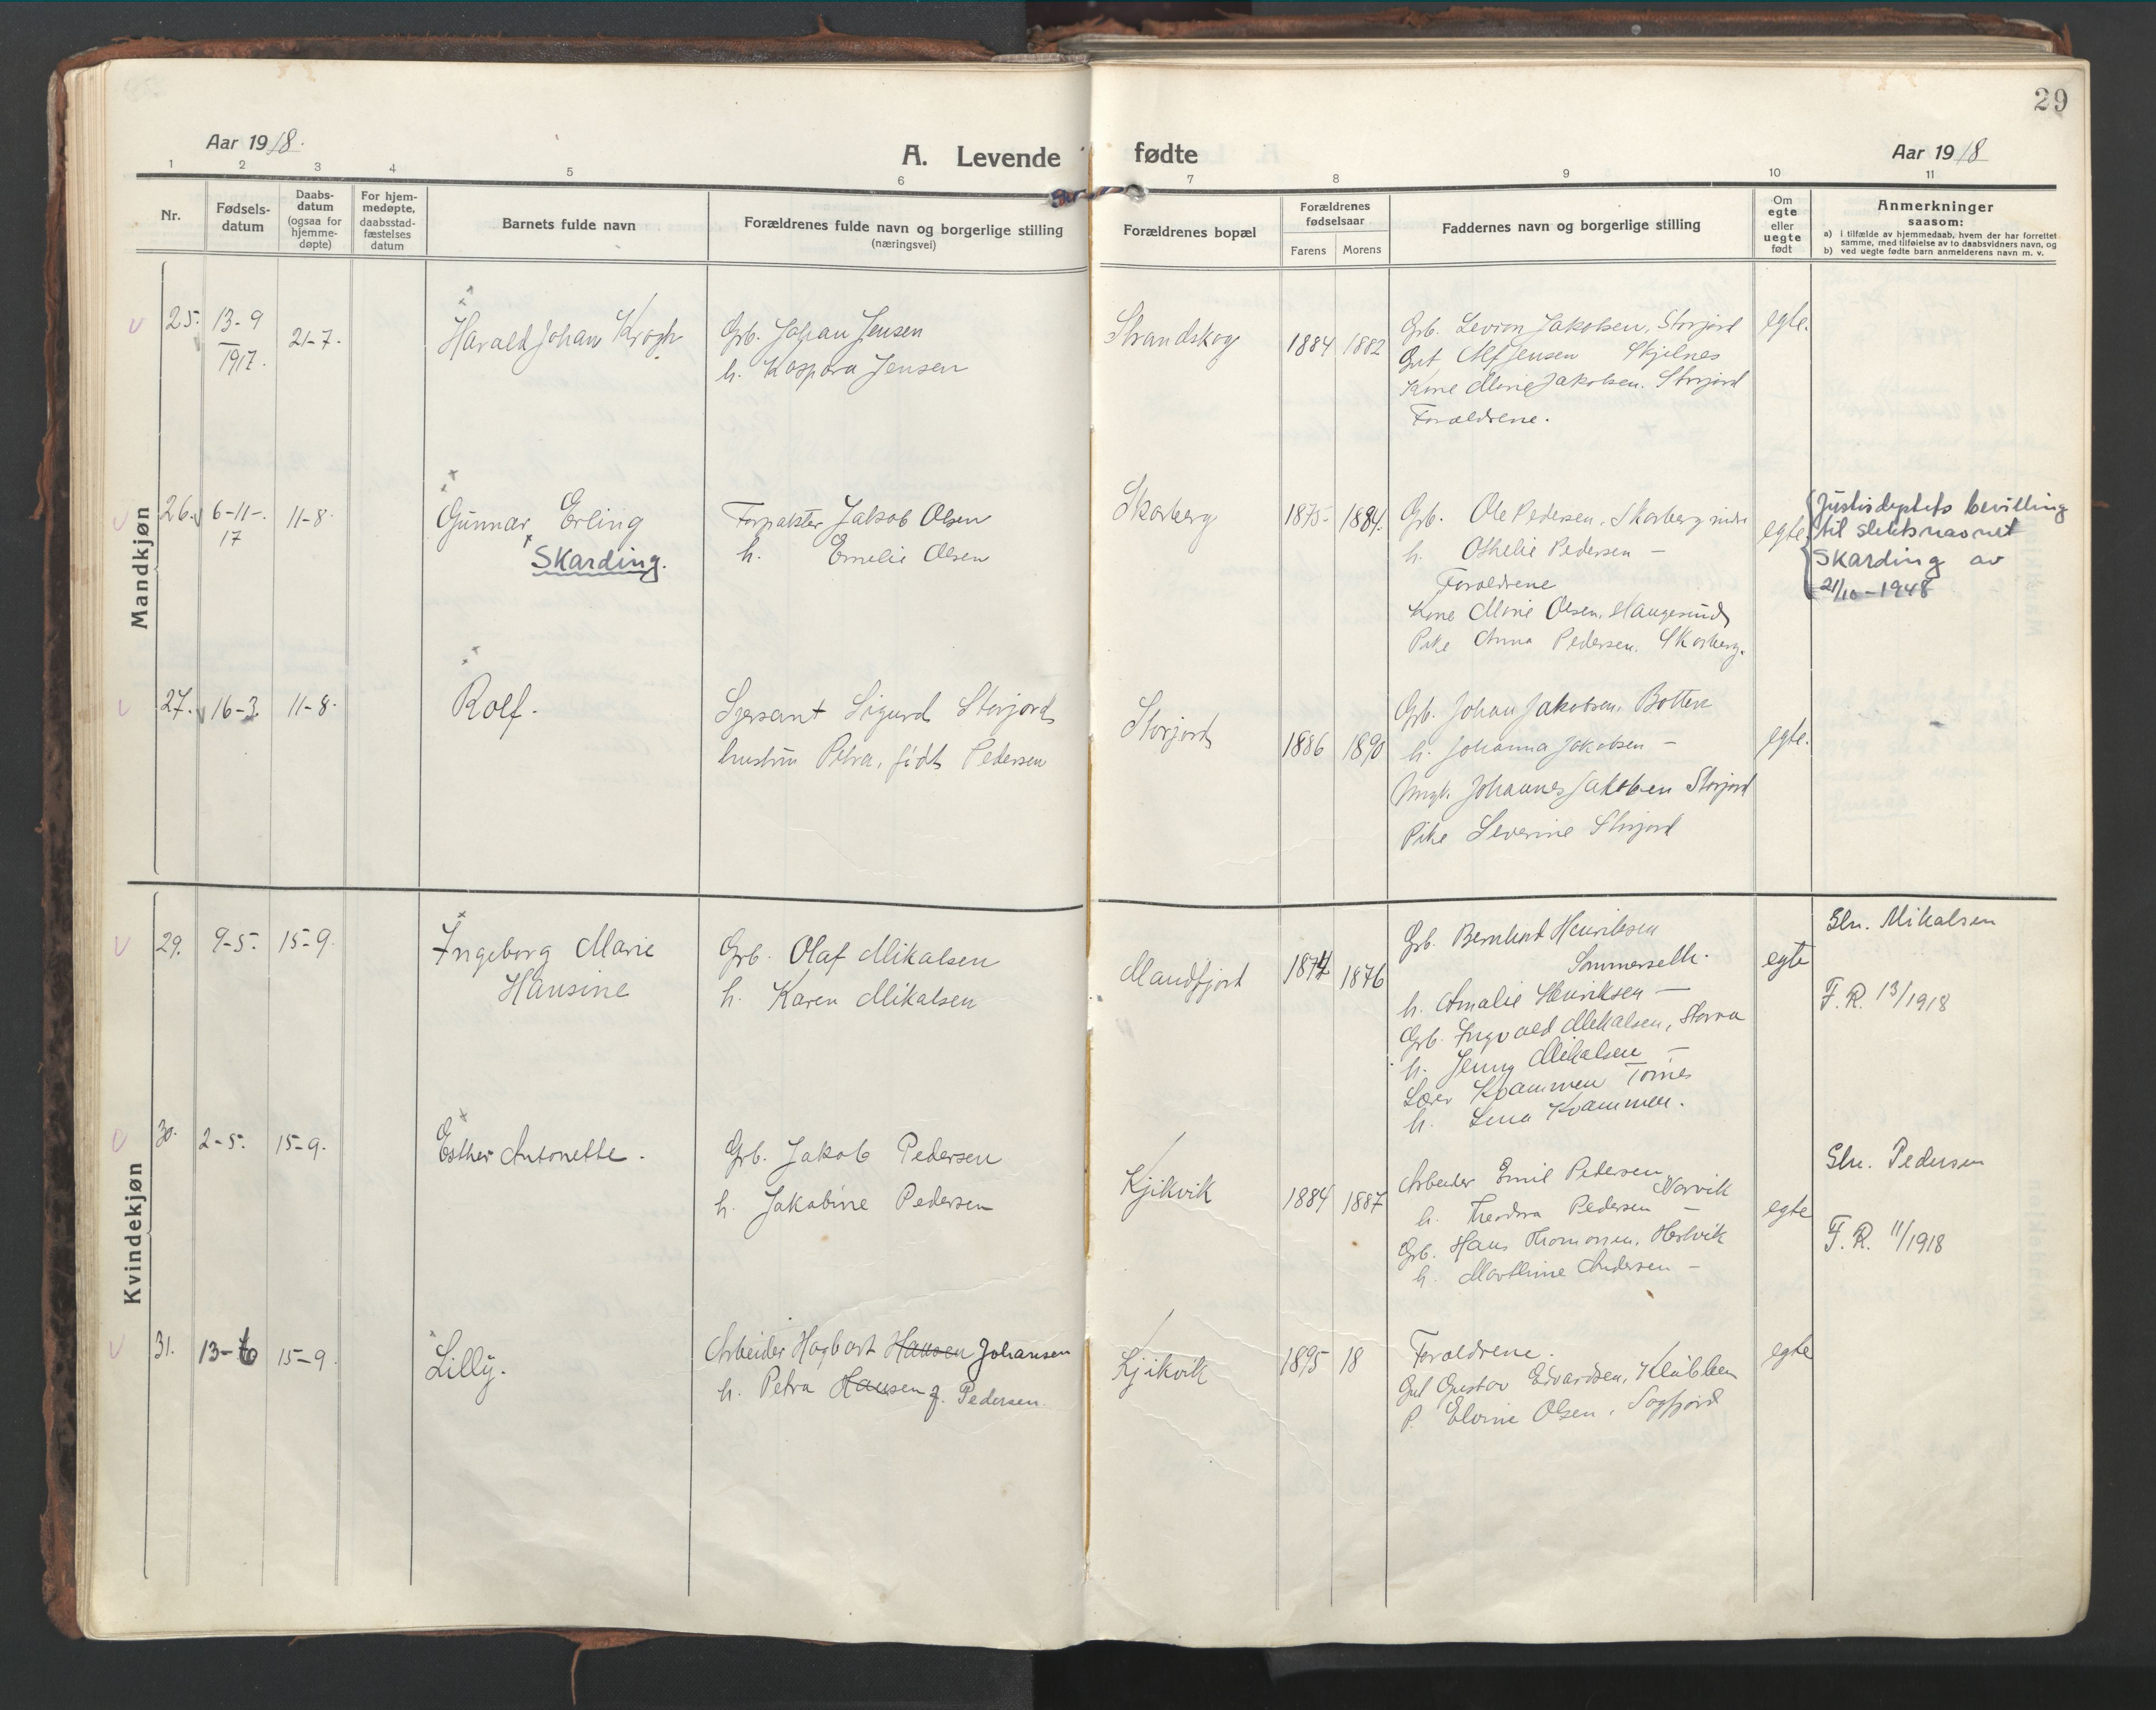 29
Aar 1918.
A. Levende fødte
Aar 1918
1 2 3 4 5 6 7 8 9 10 11
Nr.
Fødsels-
datum
Daabs-
datum
(ogsaa for
hjemme-
døpte)
For hjem-
medøpte,
daabsstad-
fæstelses
datum
Barnets fulde navn
Forældrenes fulde navn og borgerlige stilling
(næringsvei)
Forældrenes bopæl
Forældrenes
fødselsaar
Farens Morens
Faddernes navn og borgerlige stilling
Om
egte
eller
uegte
født
Anmerkninger
saasom:
a) i tilfælde av hjemmedaab, hvem der har forrettet
samme, med tilføielse av to daabsvidners navn, og
b) ved uegte fødte barn anmelderens navn m. v.
Mandkjøn
25. 13-9
1917.
21-7.
Harald Johan Krogh
Grb. Johan Jensen
h. Kaspara Jensen
Strandskog
1884 1882
Grb. Jakobsen, Storjord
Alf Jensen Skjelnes
Kone Marie Jakobsen. Storjord
Forældrene.
egte.
26. 6-11-.
17
11-8.
Gunnar Erling
Skarding.
Forpakter Jakob Olsen
h. Emelie Olsen
Skarberg
1875- 1884.
Grb. Ole Pedersen, Skarberg indre
h. Othelie Pedersen —
Forældrene
Kone Marie Olsen, Haugesund
Pike Anna Pedersen. Skarberg.
egte
Justisdeptets bevilling
til slektsnavnet
Skarding av
21/10-1948
27. 16-3. 11-8.
Rolf.
Sersant Sigurd Storjord
hustru Petra, født Pedersen
Storjord
1886 1890
Grb. Johan Jakobsen. Botten
h. Johanna Jakobsen —
Ungk. Johannes Jakobsen Storjord
Pike Severine Storjord
egte.
Kvindekjøn
29. 9-5. 15-9.
Ingeborg Marie
Hansine
Grb. Olaf Mikalsen
h. Karen Mikalsen
Mandfjord
1874 1876
Grb. Bernhard Henriksen
Sommerseth.
h. Amalie Henriksen —
Grb. Ingvald Mikalsen,
h. Jenny Mikalsen —
Lærer Kvammen Tømes
h. Lina Kvammen.
egte
Sln. Mikalsen
F. R. 13/1918
30. 2-5. 15-9.
Esther Antonette.
Grb. Jakob Pedersen
h. Jakobine Pedersen
Kjikvik
1884 1887
Arbeider Emil Pedersen,
Narvik
h. Theodora Pedersen —
Grb. Hans Thomassen, Hestvik
h. Marthine Andersen —
egte
Sln. Pedersen
F. R. 11/1918
31. 13-6 15-9.
Lilly.
Arbeider Hagbart Hansen Johansen
h. Petra Hansen f. Pedersen.
Kjikvik
1895 18
Forældrene.
Gut Gustav Edvardsen, Klubben
P. Elvine Olsen, Sagfjord
egte